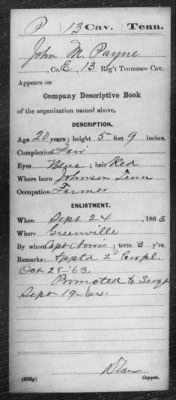 P 13 Cav. Tenn.
John M. Payne
, Co. E, 13 Reg't Tennessee Cav.
Appears on
Company Descriptive Book
of the organization named above.
DESCRIPTION.
Age 20 years; height 5 feet 9 inches.
Complexion Fair
Eyes Blue; hair Red
Where born Johnson Tenn
Occupation Farmer
ENLISTMENT.
When Sept 24, 1863.
Where Greenville
By whom Capt Norris; term 3 y'rs.
Remarks: Appt'd 2d Corpl.
Oct 28-'63
Promoted to Sergt
Sept 19-64.
Copyist.